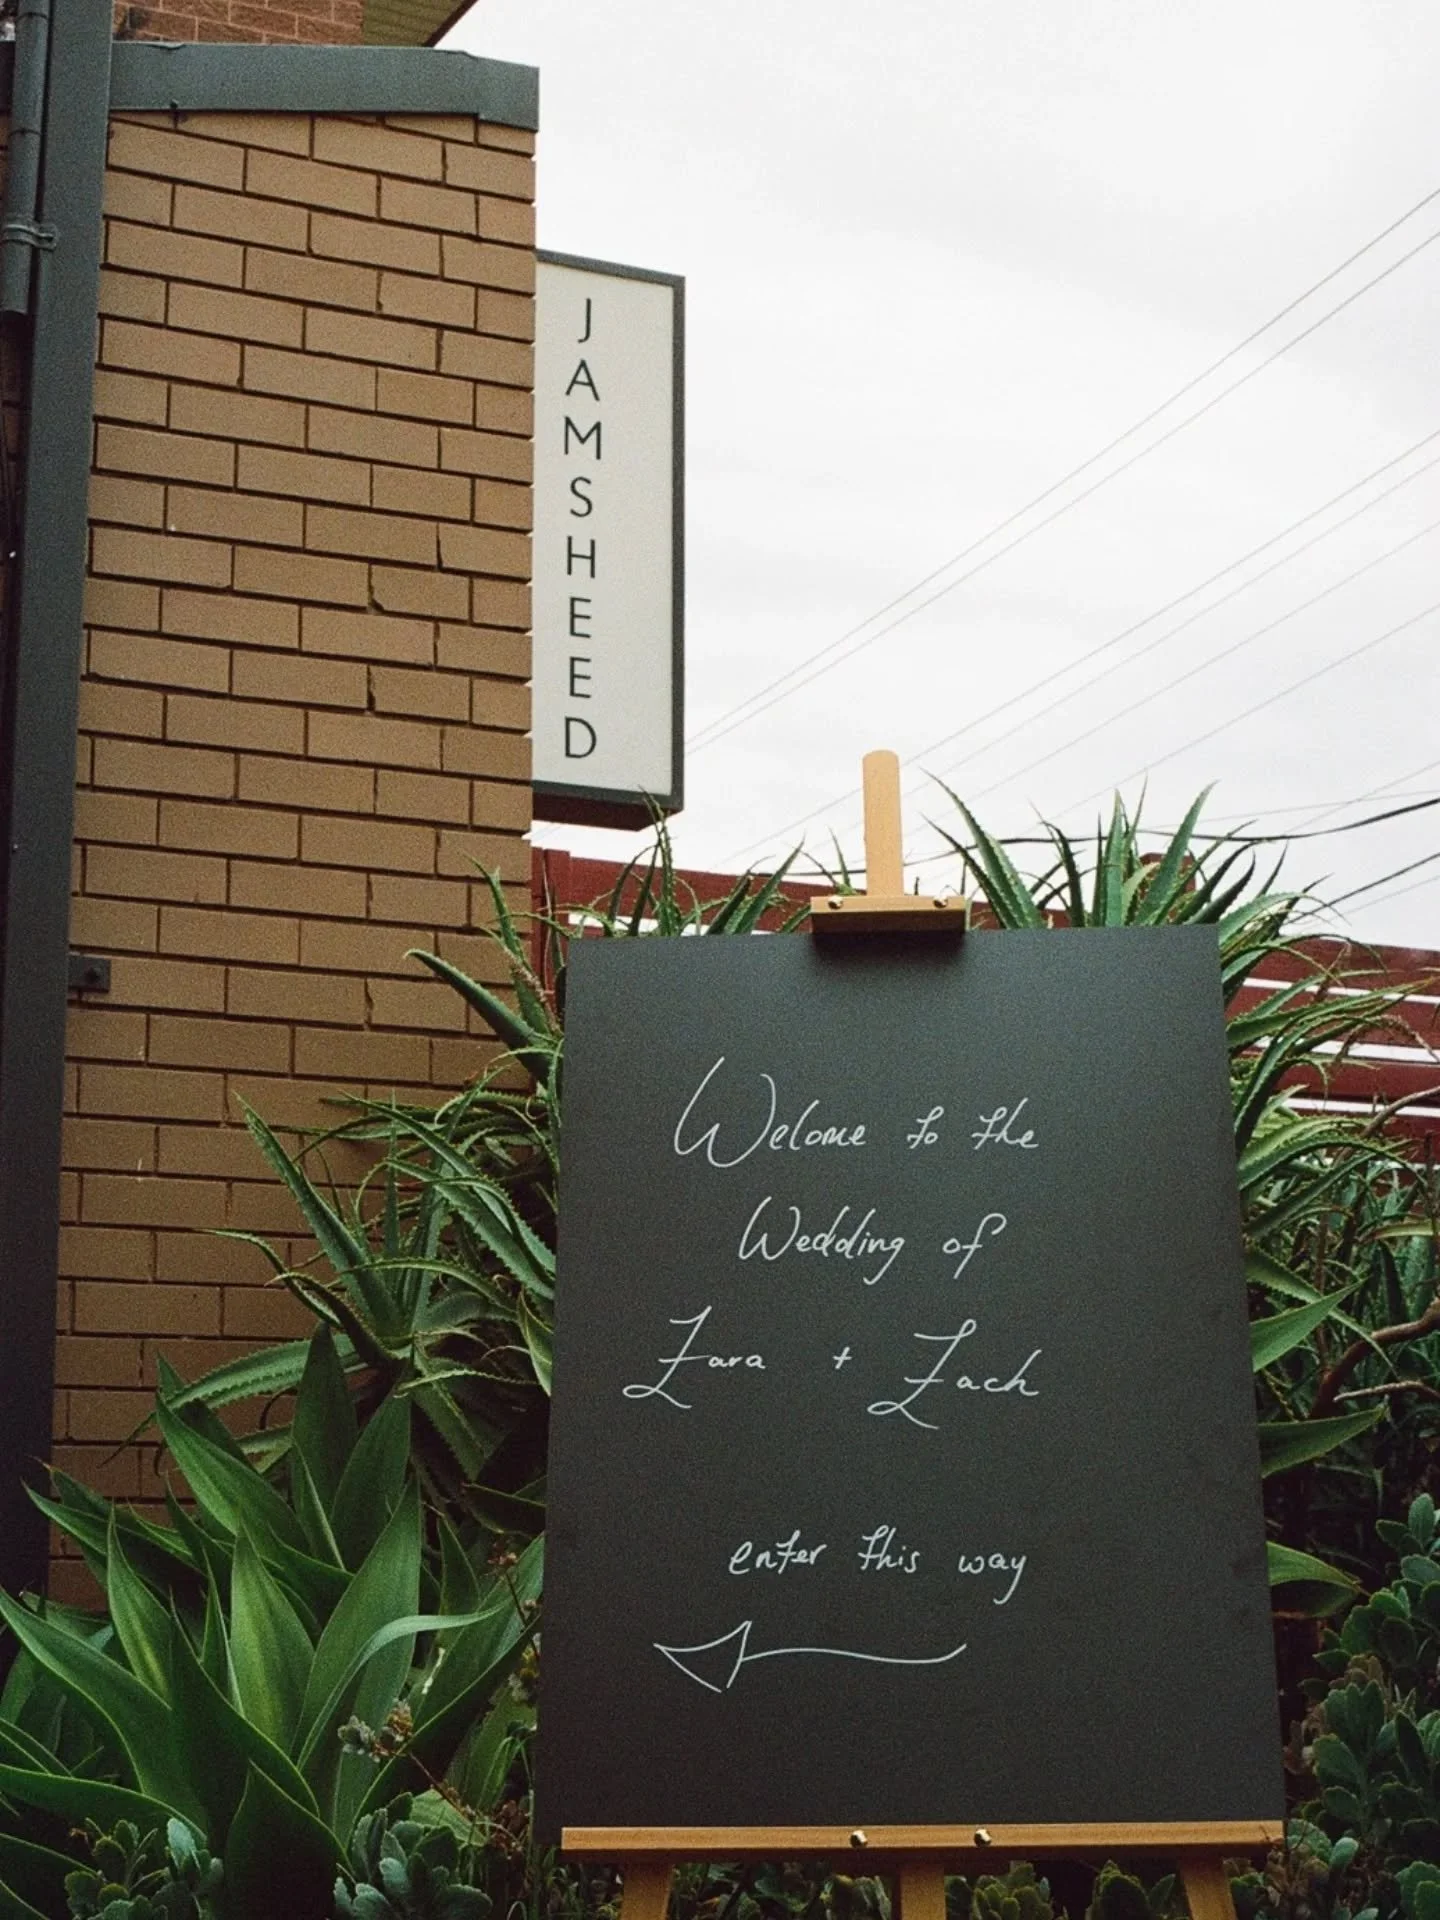 JAMSHEED
Welome to the
Wedding of
Zara + Zach
enter this way